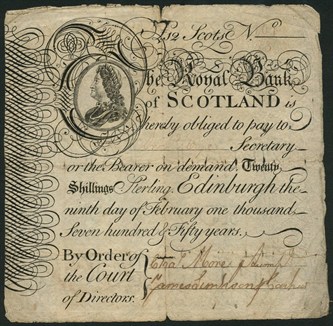 £12 Scots No
The Royal Bank
of SCOTLAND is
hereby obliged to pay to
Secretary
or the Bearer on demand Twenty
Shillings Sterling. Edinburgh the
ninth day of February one thousand
Seven hundred & Fifty years.
By Order of
the Court
of Directors.